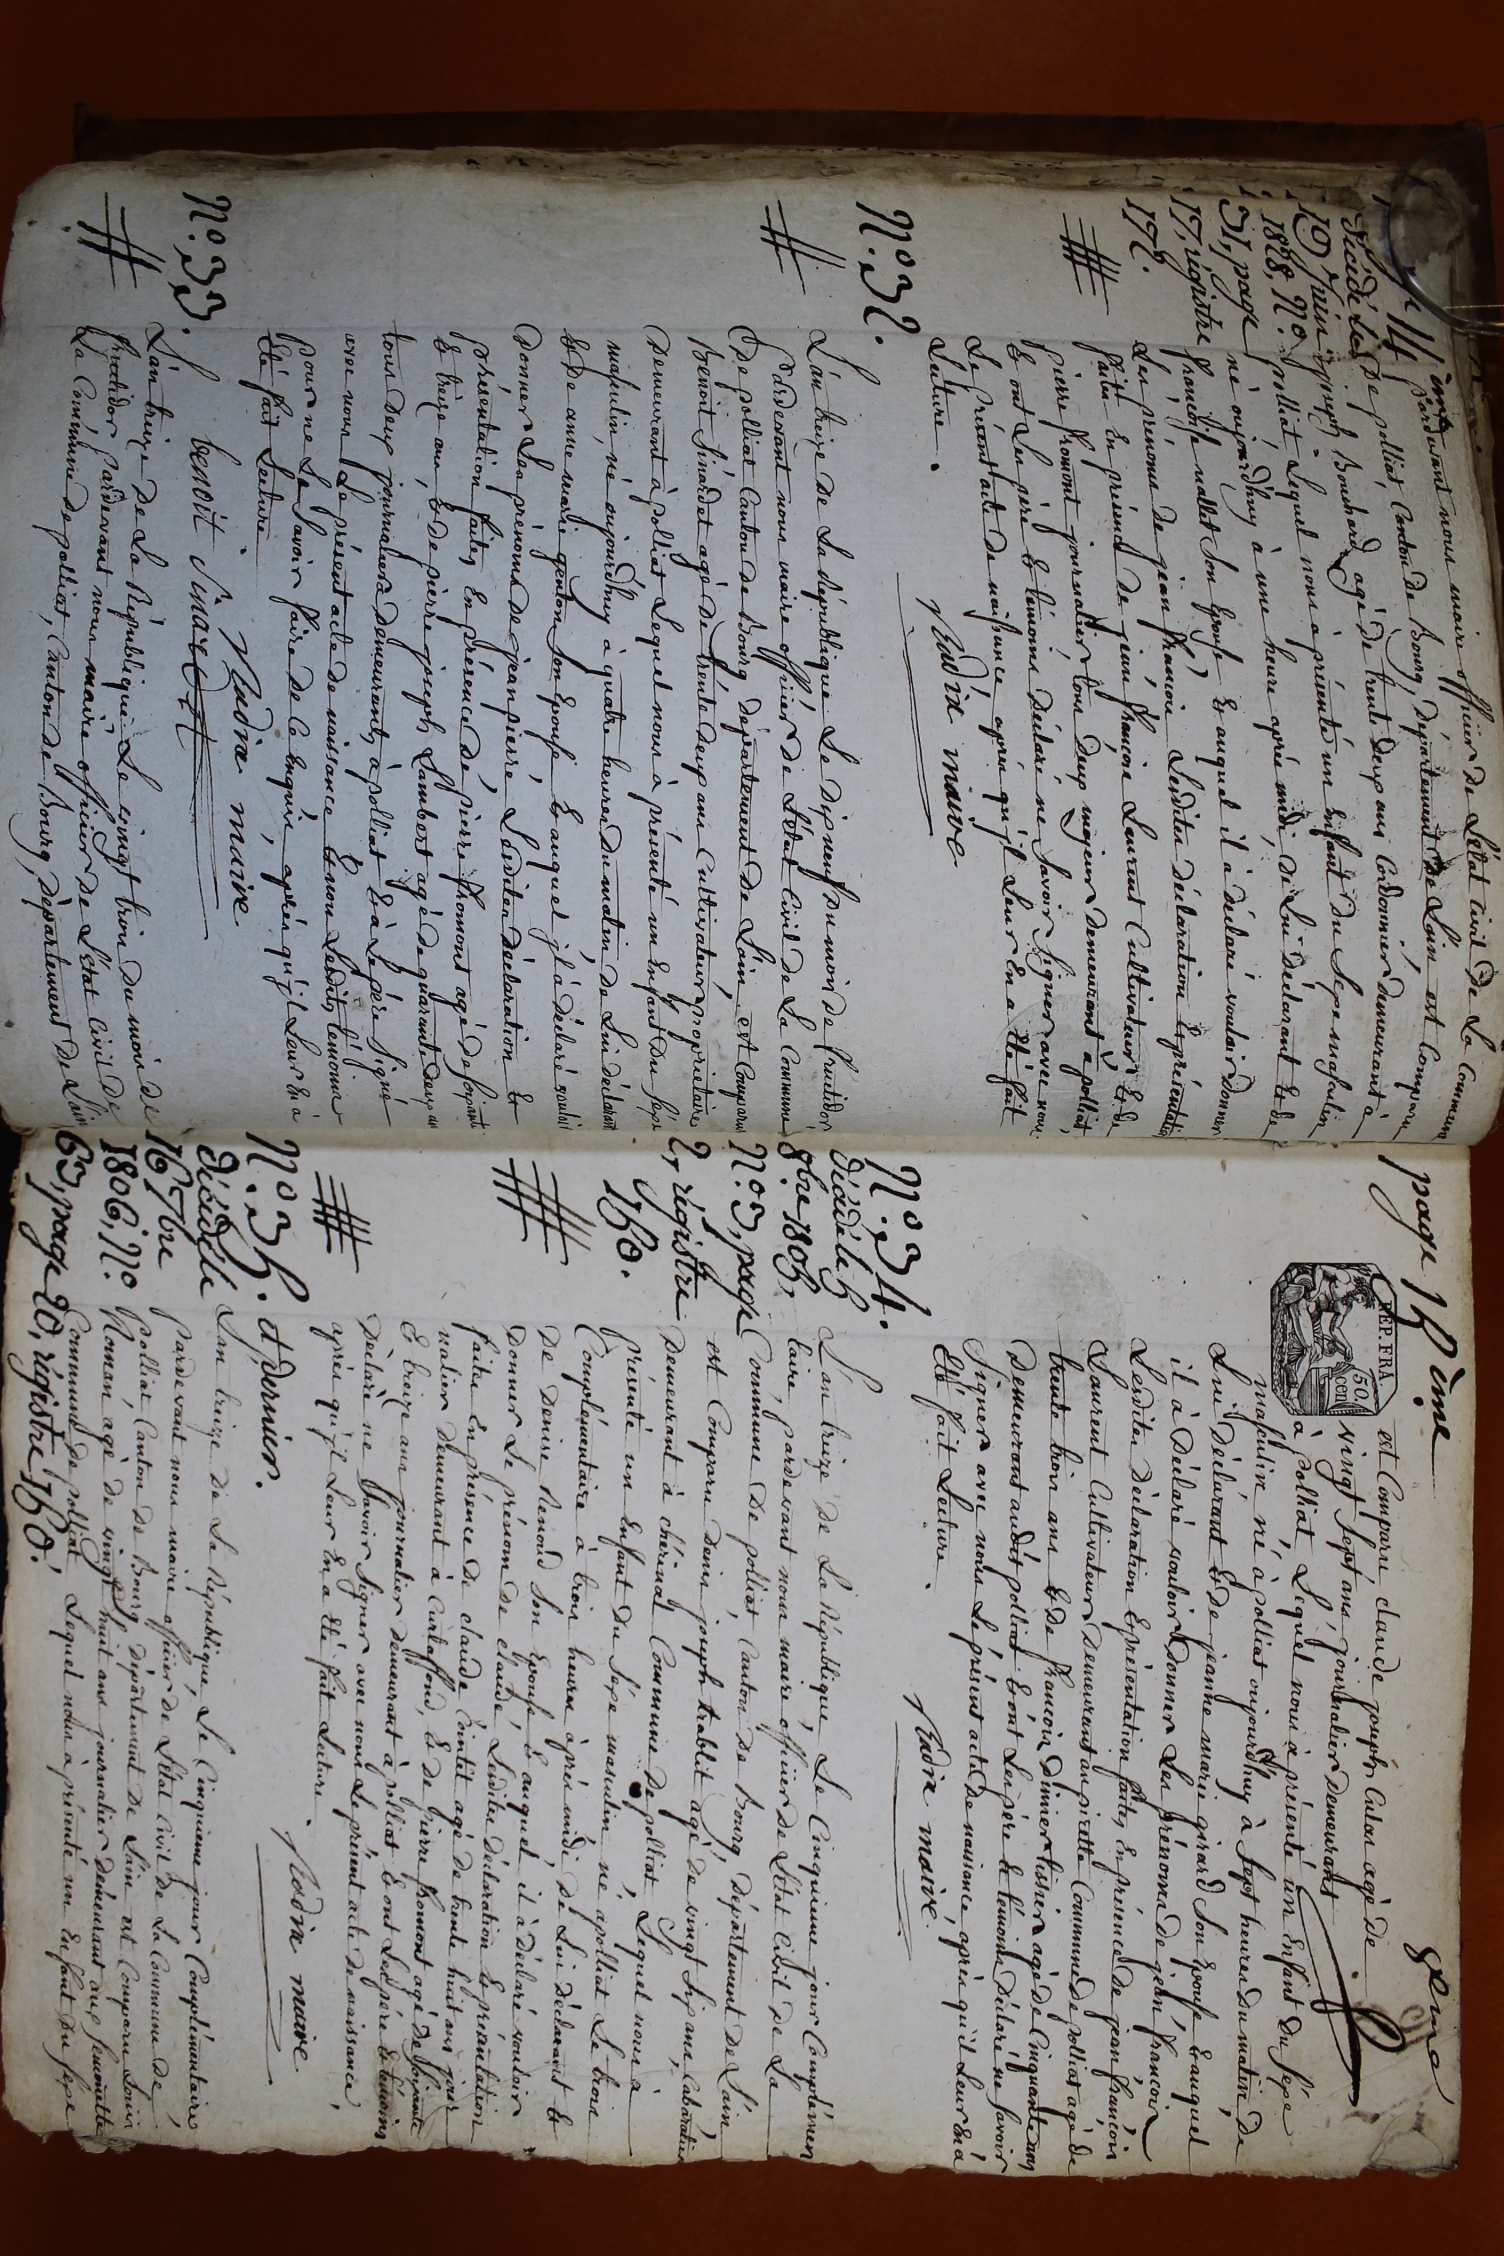 page 14 ème
pardevant nous maire officier de L'état Civil de La Commune
De polliat Canton de Bourg, département de L'ain est Comparu
joseph Bouchard agé de trente deux ans Cordonnier demeurant à
polliat Lequel nous à présenté un Enfant du Sexe masculin
né aujourdhuy à une heure après midi de Lui déclarant & de
françoise nallet Son Epouse & auquel il à déclaré vouloir donner
Les prénoms de jean françois Lesdites déclaration & présentation
faites En présence de jean françois Laurent Cultivateur & de
pierre fromont journalier, tous deux majeurs demeurant à polliat
& ont Les père & témoins déclaré ne Savoir Signer avec nous
Le présent acte de naissance après qu'il Leur En a Eté fait
Lecture.
Nudre maire
décédé Le
19 juin
1808, N.o
31, page
17, régistre
172.
N.o 32.
L'an treize de La République Le Dix neuf du mois de fructidor
Pardevant nous maire officier de L'état Civil de La Commune
De polliat Canton de Bourg département de L'ain est Comparu
Benoit Sinardet agé de trente deux ans Cultivateur proprietaire
Demeurant à polliat Lequel nous à présenté un Enfant Du Sexe
masculin, né aujourdhuy à quatre heures du matin de Lui déclarant
& de anne marie genton Son Epouse & auquel il à déclaré vouloir
Donner Les prénoms de jean pierre Lesdites déclaration &
présentation faites En présence de pierre fromont agé de Soixante
& treize ans, & de pierre joseph Lambert agé de quarante deux ans
tous deux journaliers demeurants à polliat & à Le père Signé
avec nous Le présent acte de naissance & non Lesdits témoins
pour ne Le Savoir faire de Ce Enquis, après qu'il Leur En à
Eté fait Lecture
benoit Sinardet Nudre maire
N.o 33.
L'an treize De La République Le vingt trois du mois de
fructidor pardevant nous maire officier de L'état Civil De
La Commune de polliat, Canton de Bourg, département de L'ain
page 15 ème
REP. FRA
50.
cen
est Comparu claude joseph Culon agé de
vingt Sept ans, journalier demeurant
à polliat Lequel nous à présenté un Enfant du Sexe
masculin né à polliat aujourdhuy à Sept heures du matin de
Lui déclarant & de jeanne marie girard Son Epouse & auquel
il à déclaré vouloir donner Les prénoms de jean françois
Lesdites déclaration & présentation faites En présence de jean françois
Laurent Cultivateur demeurant au pirette Commune de polliat agé de
trente trois ans & de françois Dinier tissier agé de Cinquante ans
Demeurant audit polliat & ont Les père & témoins déclaré ne Savoir
Signer avec nous Le présent acte de naissance après qu'il Leur En à
Eté fait Lecture.
Nudre maire
N.o 34.
décédé Le 5
8bre 1805,
N.o 3, page
2, régistre
150.
L'an treize De La République Le Cinquieme jour Complémen
taire, pardevant nous maire officier de L'état Civil de La
Commune De polliat, Canton de Bourg département de L'ain
est Comparu denis joseph trablit agé de vingt Six ans, Cabaretier
Demeurant à chérinal Commune de polliat, Lequel nous à
présenté un Enfant du Sexe masculin né à polliat Le trois
Complémentaire à trois heures après midi de Lui déclarant &
De denise Renoud Son Epouse & auquel il à déclaré vouloir
donner Le prénom de claude Lesdites déclaration & présentation
faites En présence de claude Cointet agé de trente huit ans jour
nalier demeurant à Curtaffond, & de pierre fromont agé de Soixante
& treize ans journalier demeurant à polliat & ont Les père & témoins
Déclaré ne Savoir Signer avec nous Le présent acte de naissance,
après qu'il Leur En a Eté fait Lecture.
Nudre maire
N.o 35. et dernier.
décédé Le
16 7bre
1806, N.o
63, page 20, régistre 150.
L'an treize de La République Le Cinquieme jour Complémentaire
pardevant nous maire officier de L'état Civil de La Commune de
Polliat Canton de Bourg, département de L'ain est Comparu Louis
Nonnan agé de vingt huit ans journalier demeurant aux
Commune de polliat Lequel nous à présenté un Enfant du Sexe